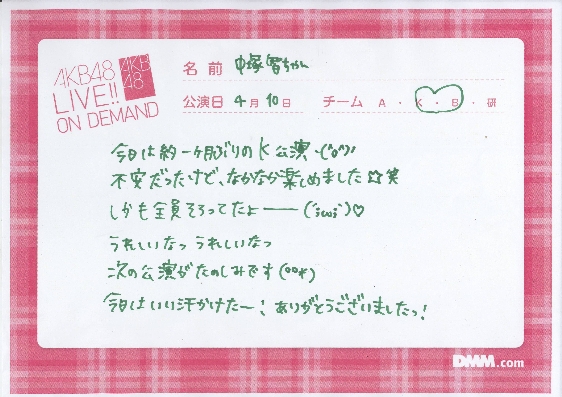 AKB48
LIVE!!
ON DEMAND
AKB
48
名前 中塚智ちゃん
公演日 4月10日 チーム A・K・B・研
今日は約一ヶ月ぶりのK公演ヽ(^o^)丿
不安だったけど、なかなか楽しめました☆笑
しかも全員そろってたよーーー(´;ω;`)♡
うれしいなっ うれしいなっ
次の公演がたのしみです(°°*)
今日はいい汗かけたー! ありがとうございましたっ!
DMM.com